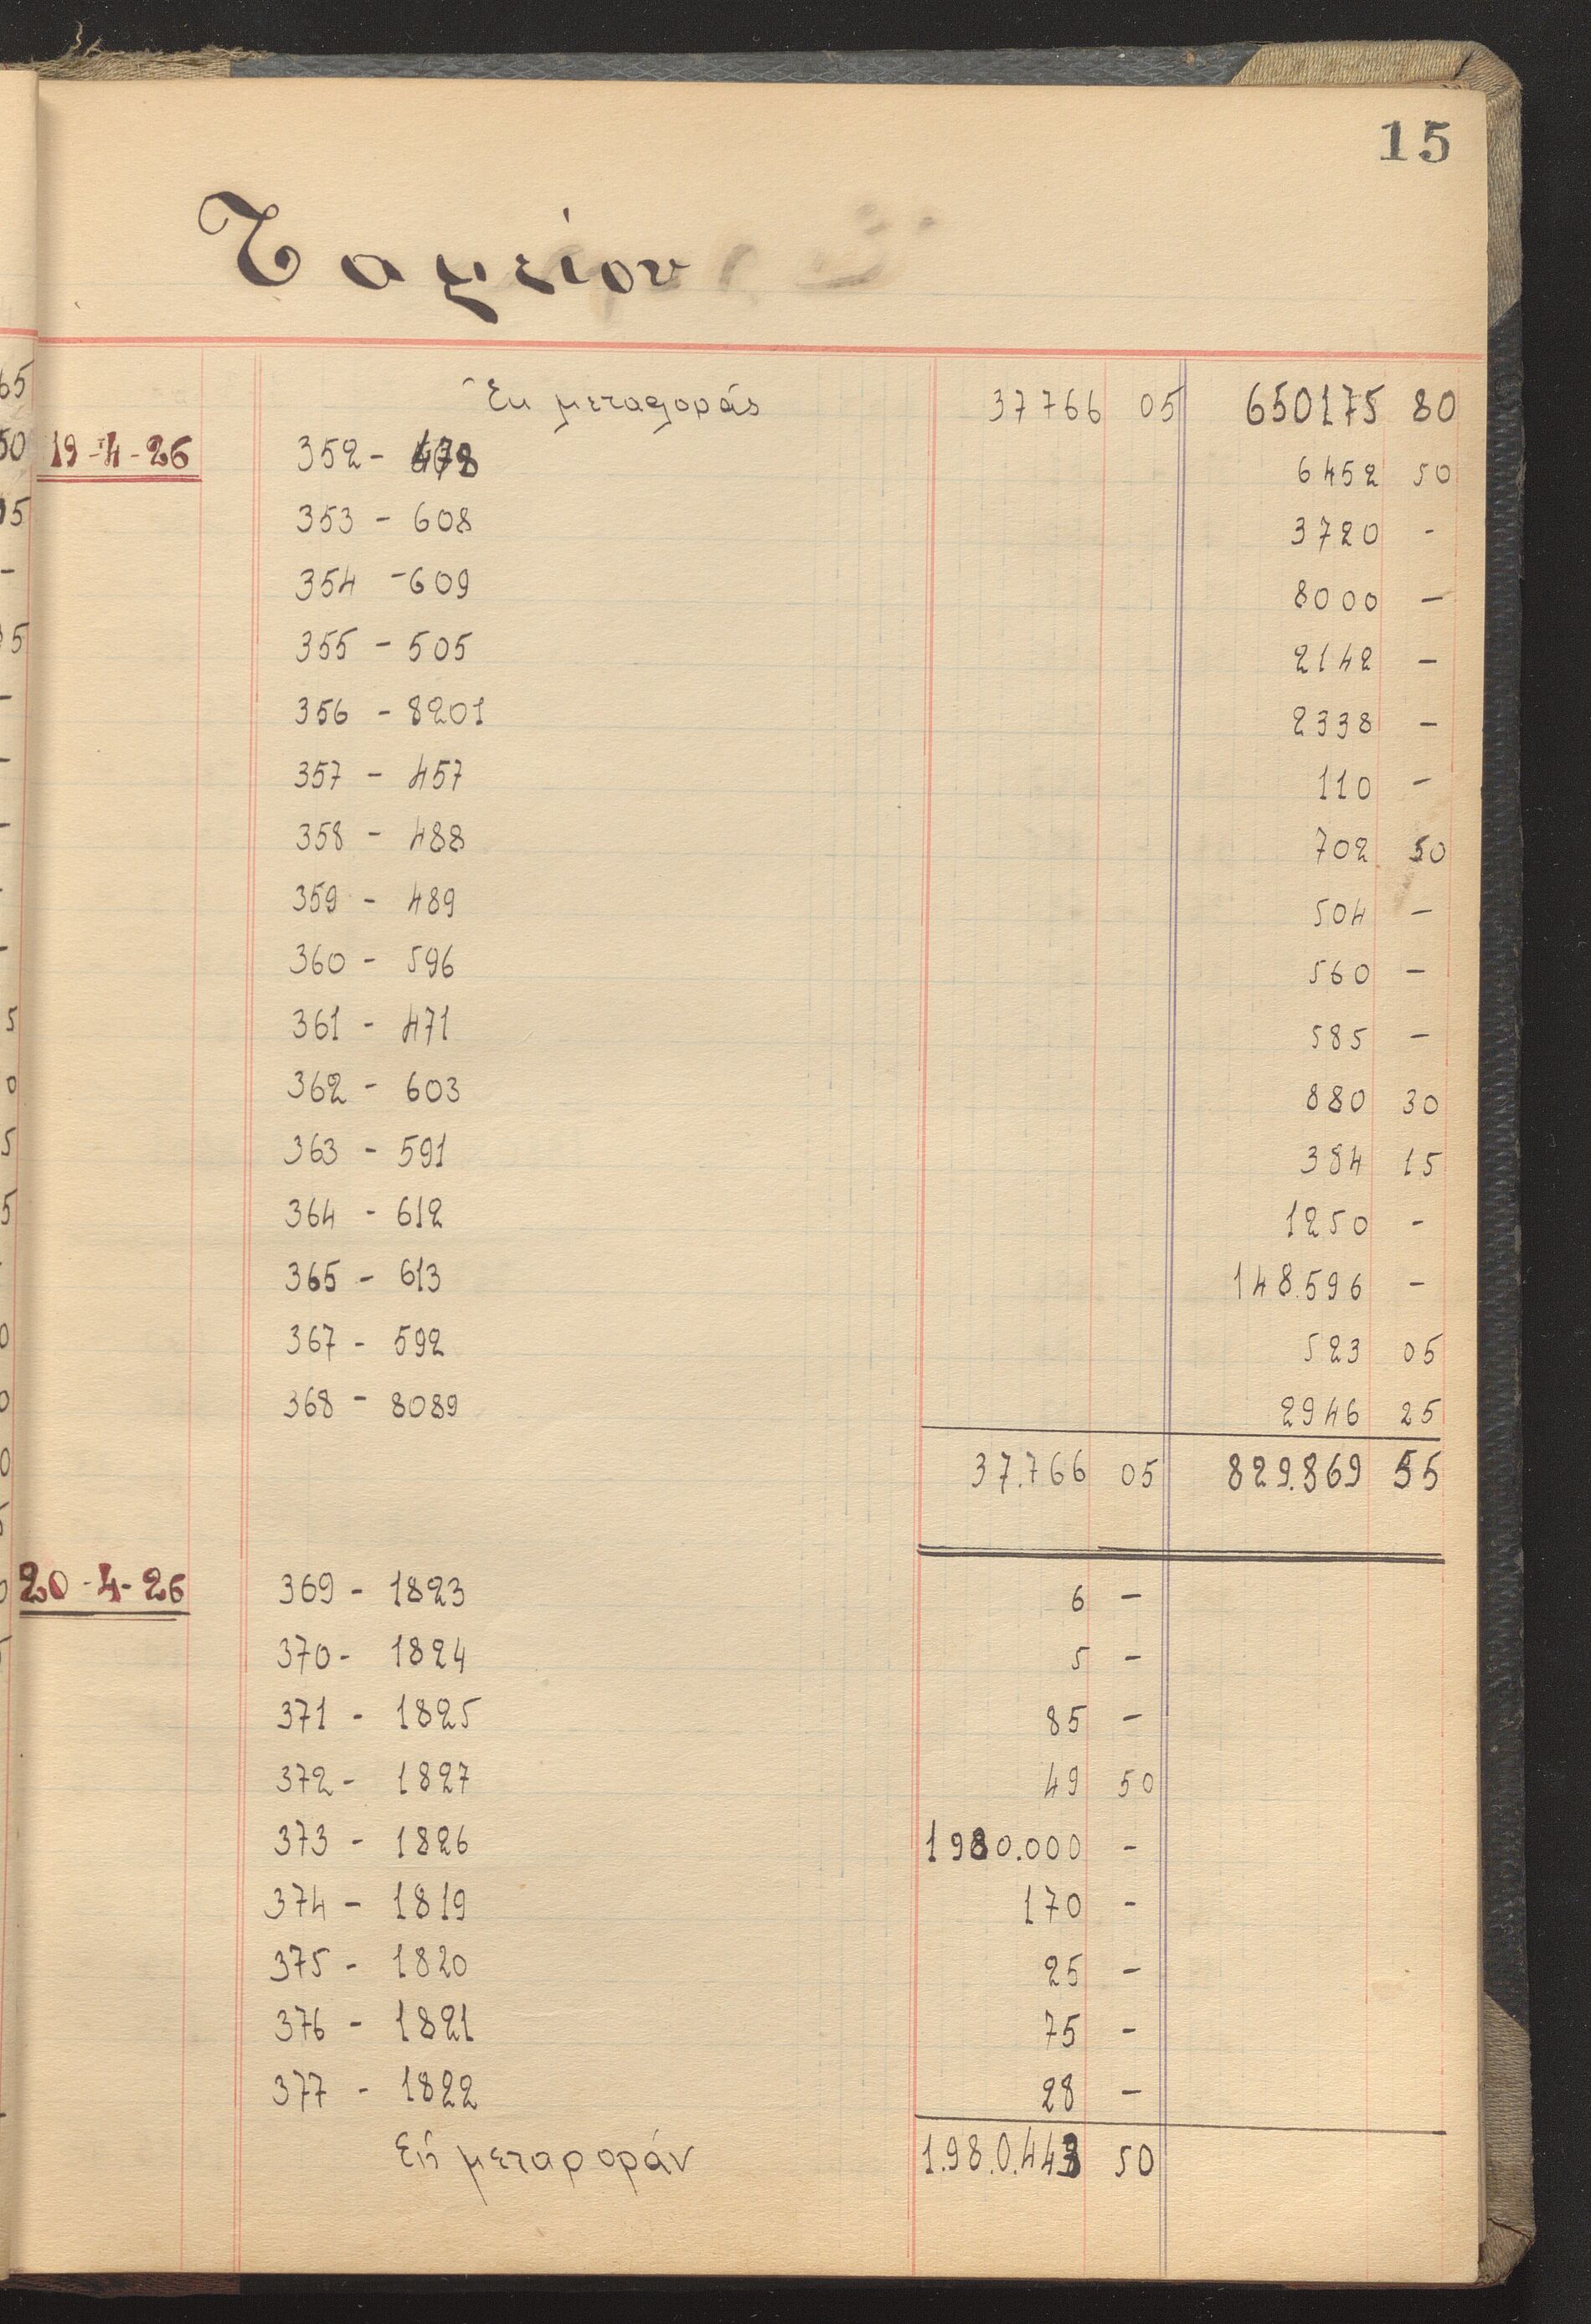 15
Ταμείον
Ἐκ μεταφοράς 37766 05 650175 80
19-4-26 352 - 478 6452 50
353 - 608 3720 -
354 - 609 8000 -
355 - 505 2142 -
356 - 8201 2338 -
357 - 457 110 -
358 - 488 702 50
359 - 489 504 -
360 - 596 560 -
361 - 471 585 -
362 - 603 880 30
363 - 591 384 15
364 - 612 1250 -
365 - 613 148.596 -
367 - 592 523 05
368 - 8089 2946 25
37.766 05 829.869 55
20-4-26 369 - 1823 6 -
370 - 1824 5 -
371 - 1825 85 -
372 - 1827 49 50
373 - 1826 1980.000 -
374 - 1819 170 -
375 - 1820 25 -
376 - 1821 75 -
377 - 1822 28 -
Εἰς μεταφοράν 1.98.0.443 50